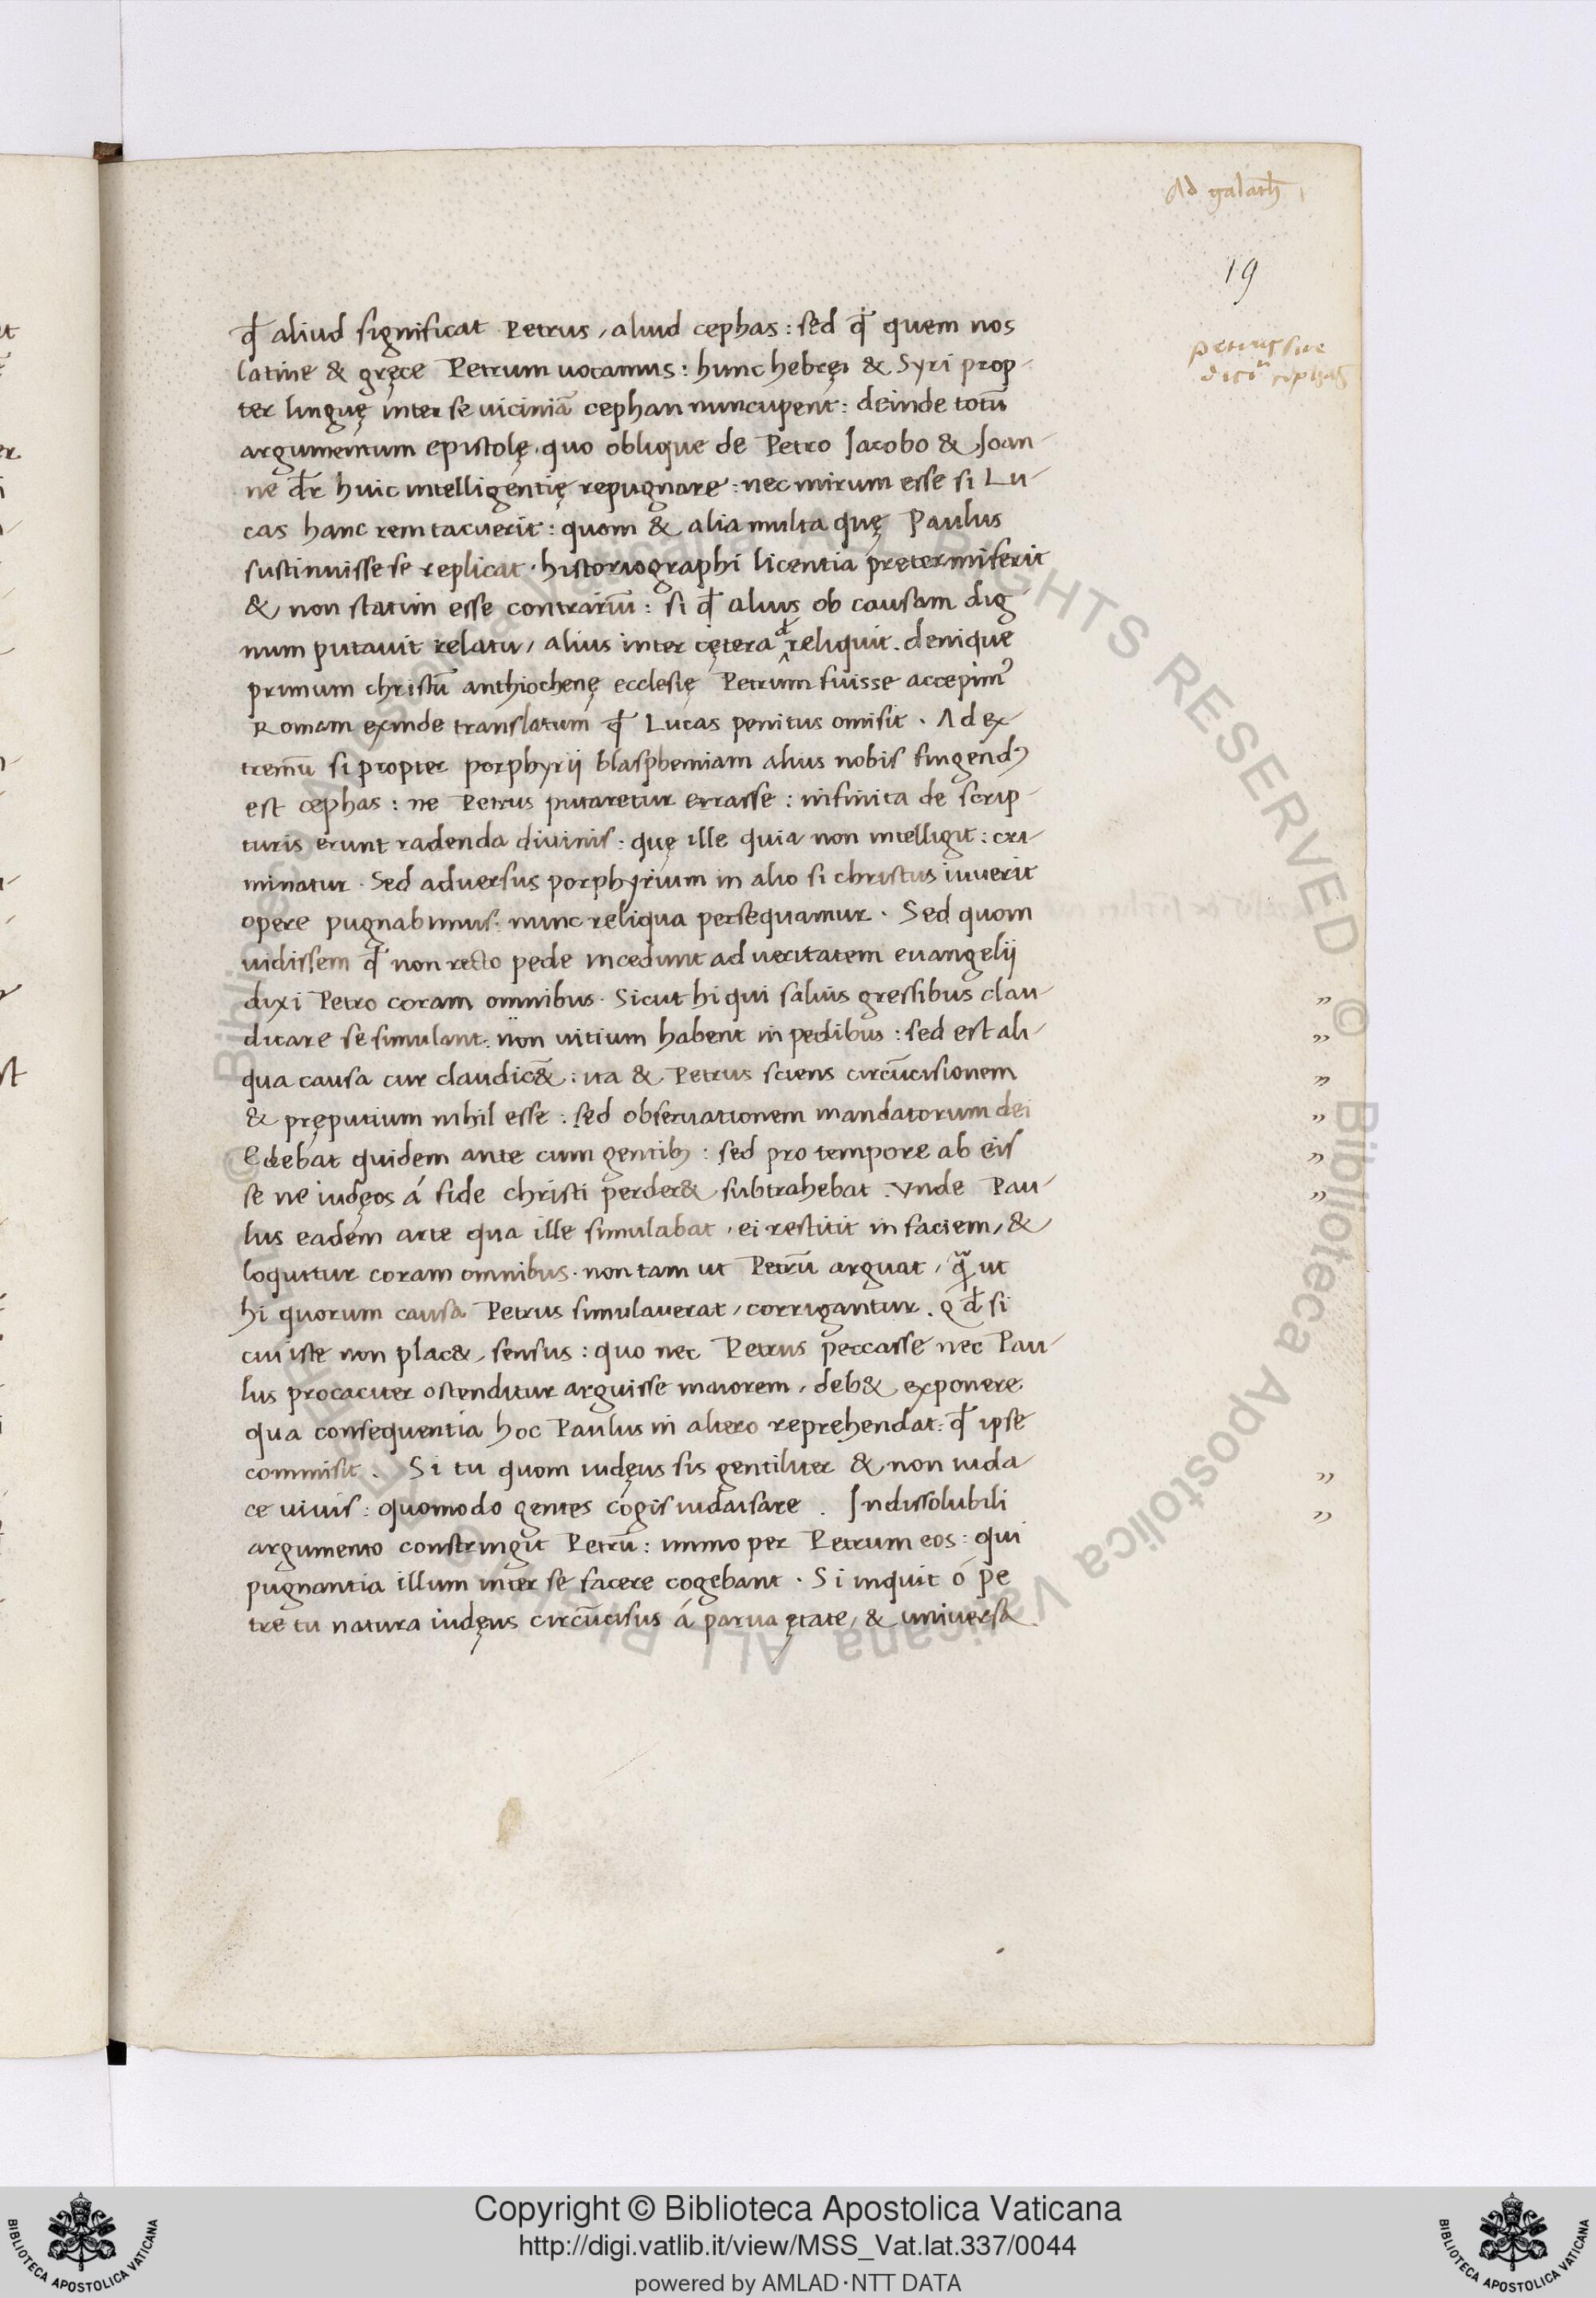 Ad galath
19
petrus siue
dicit cephas
qđ aliud significat Petrus, aliud cephas: sed qđ quem nos
latine & gręce Petrum uocamus: hunc hebręi & Syri prop-
ter linguę inter se uiciniā cephan nuncupent: deinde totū
argumentum epistolę, quo oblique de Petro Jacobo & Joan-
ne dr̄ huic intelligentię repugnare: nec mirum esse si Lu-
cas hanc rem tacuerit: quom & alia multa quę Paulus
sustinuisse se replicat · historiographi licentia pretermiserit
& non statim esse contrariū: si qđ alius ob causam dig
num putauit relatu, alius inter cętera reliquit. denique
primum christū anthiochenę ecclesię Petrum fuisse accepimꝰ
Romam exinde translatum qđ Lucas penitus omisit. Ad ex-
tremū si propter porphyrii blasphemiam alius nobis fingendꝰ
est cephas: ne Petrus putaretur errasse: infinita de scrip-
turis erunt radenda diuinis: quę ille quia non intelligit: cri-
minatur. Sed aduersus porphyrium in alio si christus iuuerit
opere pugnabimus: nunc reliqua persequamur. Sed quom
uidissem qđ non recto pede incedunt ad ueritatem euangelii
dixi Petro coram omnibus. Sicut hi qui saluis gressibus clau-
dicare se simulant: non uitium habent in pedibus: sed est ali-
qua causa cur claudic&: ita & Petrus sciens circūcisionem
& pręputium nihil esse: sed obseruationem mandatorum dei
Edebat quidem ante cum gentibꝰ: sed pro tempore ab eis
se ne iudęos á fide christi perder& subtrahebat. Vnde Pau-
lus eadem arte qua ille simulabat, ei restitit in faciem, &
loquitur coram omnibus. non tam ut Petrū arguat, quā ut
hi quorum causa Petrus simulauerat, corrigantur. Qđ si
cui iste non plac& sensus: quo nec Petrus peccasse nec Pau-
lus procaciter ostenditur arguisse maiorem, deb& exponere
qua consequentia hoc Paulus in altero reprehendat: qđ ipse
commisit. Si tu quom iudęus sis gentiliter & non iuda-
ce uiuis: quomodo gentes cogis iudaisare. Indissolubili
argumento constringit Petrū: immo per Petrum eos: qui
pugnantia illum inter se facere cogebant. Si inquit ó pe
tre tu natura iudęus circūcisus á parua ętate, & uniuersa
Copyright © Biblioteca Apostolica Vaticana
http://digi.vatlib.it/view/MSS_Vat.lat.337/0044
powered by AMLAD·NTT DATA
BIBLIOTECA APOSTOLICA VATICANA
BIBLIOTECA APOSTOLICA VATICANA